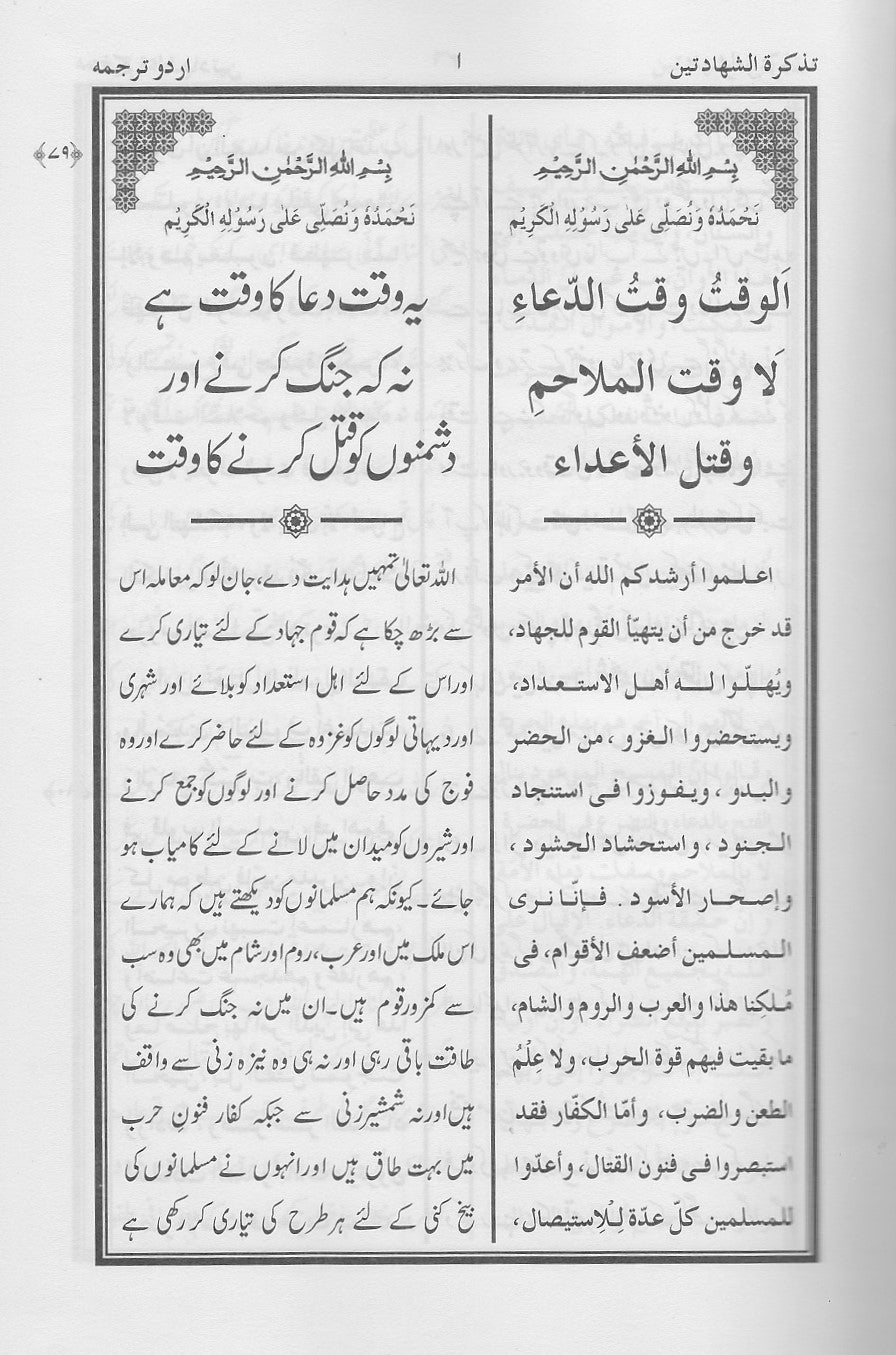 تذكرة الشهادتين
١
اردو ترجمه
﴿٧٩﴾
بِسْمِ اللّٰهِ الرَّحْمٰنِ الرَّحِيْمِ
نَحْمَدُهٗ وَنُصَلِّى عَلٰى رَسُوْلِهِ الْكَرِيْمِ
اَلوقتُ وقتُ الدّعاءِ
لَا وقت الملاحمِ
وقتل الأعداء
اعلموا أرشدكم الله أن الأمر
قد خرج من أن يتهيّأ القوم للجهاد،
ويُهلّوا له أهل الاستعداد،
ويستحضروا الغزو ، من الحضر
والبدو ، ويفوزوا فى استنجاد
الجنود ، واستحشاد الحشود ،
وإصحار الأسود. فإنّا نرى
المسلمين أضعف الأقوام، فى
مُلكِنا هذا والعرب والروم والشام،
ما بقيت فيهم قوة الحرب، ولا عِلْمُ
الطعن والضرب، وأمّا الكفّار فقد
استبصروا فى فنون القتال، وأعدّوا
للمسلمين كلّ عدّة لِلْاستيصال،
بِسْمِ اللّٰهِ الرَّحْمٰنِ الرَّحِيْمِ
نَحْمَدُهٗ وَنُصَلِّى عَلٰى رَسُوْلِهِ الْكَرِيْمِ
یہ وقت دعا کا وقت ہے
نہ کہ جنگ کرنے اور
دشمنوں کو قتل کرنے کا وقت
اللہ تعالیٰ تمہیں ہدایت دے، جان لو کہ معاملہ اس
سے بڑھ چکا ہے کہ قوم جہاد کے لئے تیاری کرے
اور اس کے لئے اہل استعداد کو بلائے اور شہری
اور دیہاتی لوگوں کو غزوہ کے لئے حاضر کرے اور وہ
فوج کی مدد حاصل کرنے اور لوگوں کو جمع کرنے
اور شیروں کو میدان میں لانے کے لئے کامیاب ہو
جائے۔ کیونکہ ہم مسلمانوں کو دیکھتے ہیں کہ ہمارے
اس ملک میں اور عرب، روم اور شام میں بھی وہ سب
سے کمزور قوم ہیں۔ ان میں نہ جنگ کرنے کی
طاقت باقی رہی اور نہ ہی وہ نیزہ زنی سے واقف
ہیں اور نہ شمشیر زنی سے جبکہ کفار فنونِ حرب
میں بہت طاق ہیں اور انہوں نے مسلمانوں کی
بیخ کنی کے لئے ہر طرح کی تیاری کر رکھی ہے